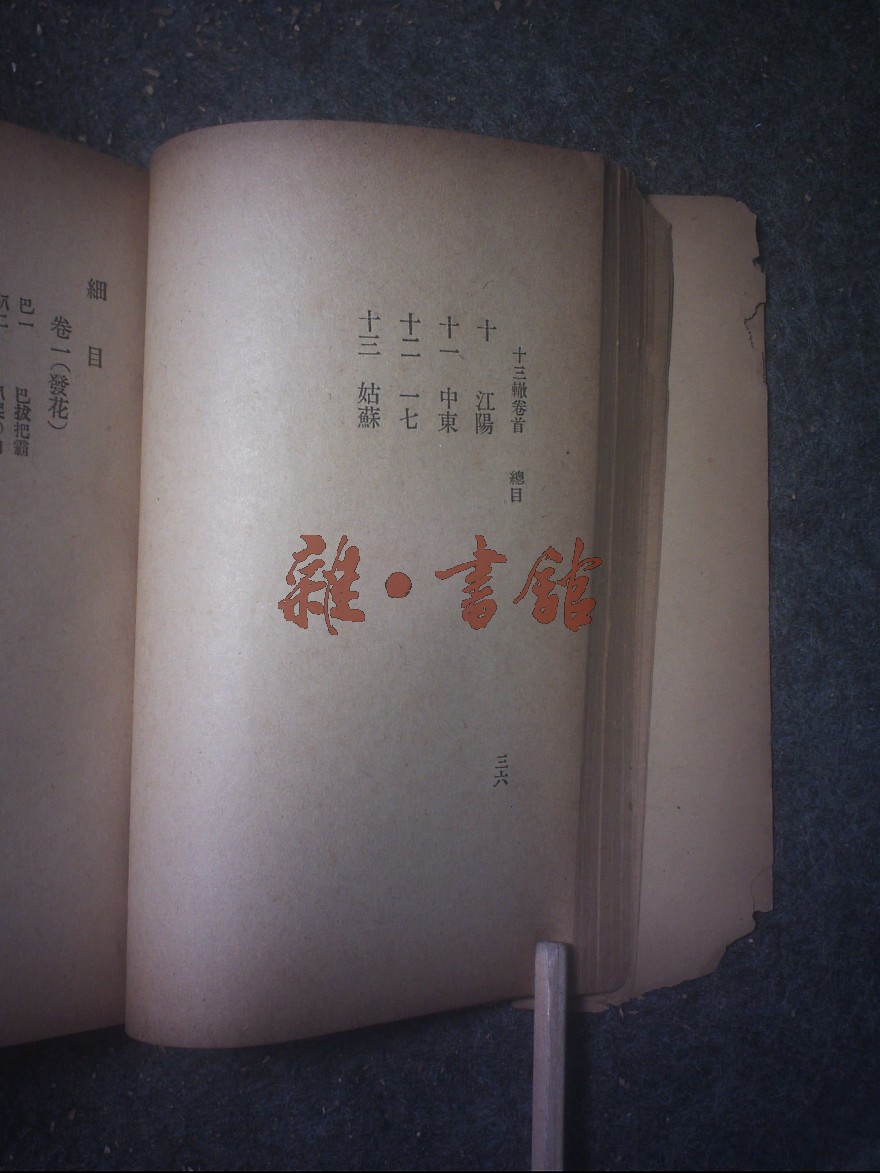 十三轍卷首　總目
十　江陽
十一　中東
十二　一七
十三　姑蘇
三六
細目
卷一（發花）
巴一　巴拔把霸
雜・書館